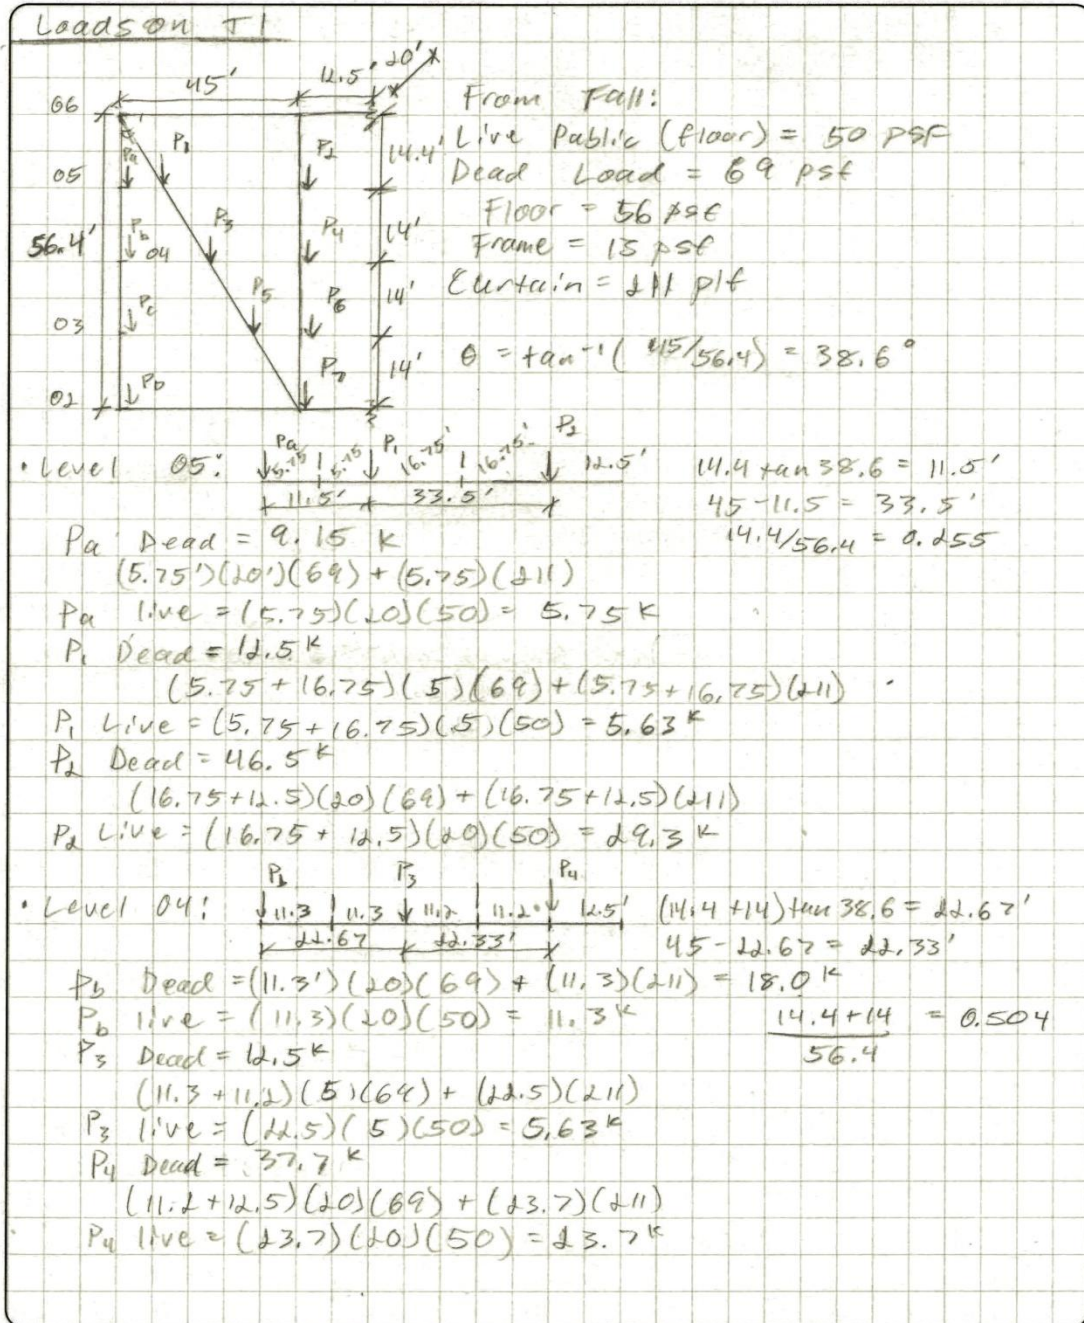 Loads on T1
45'
12.5'
20'
06
05
04
03
02
56.4'
14.4'
14'
14'
14'
Pa
P1
P2
Pb
P3
P4
Pc
P5
P6
PD
P7
From Fall:
Live Public (floor) = 50 psf
Dead Load = 69 psf
Floor = 56 psf
Frame = 13 psf
Curtain = 211 plf
θ = tan⁻¹(45/56.4) = 38.6°
• Level 05:
Pa P1 P2
5.75 5.75 16.75' 16.75' 12.5'
11.5' 33.5'
14.4 tan 38.6 = 11.5'
45-11.5 = 33.5'
14.4/56.4 = 0.255
Pa Dead = 9.15 k
(5.75')(20')(69) + (5.75)(211)
Pa live = (5.75)(20)(50) = 5.75 K
P1 Dead = 12.5 K
(5.75 + 16.75)(5)(69) + (5.75+16.75)(211)
P1 Live = (5.75 + 16.75)(5)(50) = 5.63 K
P2 Dead = 46.5 K
(16.75+12.5)(20)(69) + (16.75+12.5)(211)
P2 Live = (16.75 + 12.5)(20)(50) = 29.3 K
• Level 04:
Pb P3 P4
11.3 11.3 11.2 11.2 12.5'
22.67 22.33'
(14.4 +14) tan 38.6 = 22.67'
45-22.67 = 22.33'
Pb Dead = (11.3')(20)(69) + (11.3)(211) = 18.0 K
Pb live = (11.3)(20)(50) = 11.3 K
14.4+14 / 56.4 = 0.504
P3 Dead = 12.5 K
(11.3 + 11.2)(5)(69) + (22.5)(211)
P3 live = (22.5)(5)(50) = 5.63 K
P4 Dead = 37.7 K
(11.2 +12.5)(20)(69) + (23.7)(211)
P4 live = (23.7)(20)(50) = 23.7 K